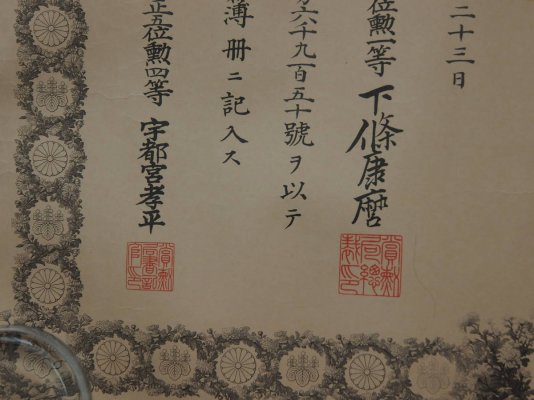 二十三日
位勲一等 下條康麿
六十九百五十號ヲ以テ
簿冊ニ記入ス
正五位勲四等 宇都宮孝平